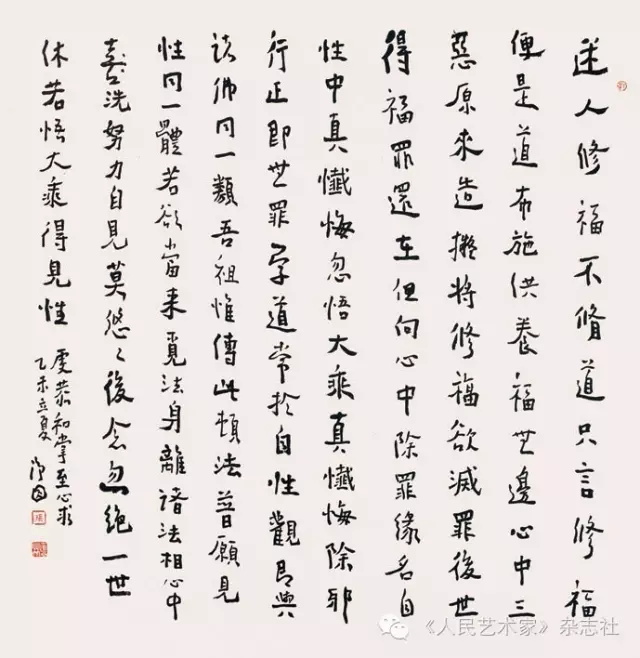 迷人修福不脩道只言修福
便是道布施供養福無邊心中三
惡原來造擬將修福欲滅罪後世
得福罪還在但向心中除罪緣各自
性中真懺悔忽悟大乘真懺悔除邪
行正即無罪學道常於自性觀即與
諸佛同一類吾祖惟傳此頓法普願見
性同一體若欲當來覓法身離諸法相心中
洗努力自見莫悠〻後念忽絕一世
休若悟大乘得見性
虔恭和掌至心求
乙未立夏
《人民艺术家》杂志社